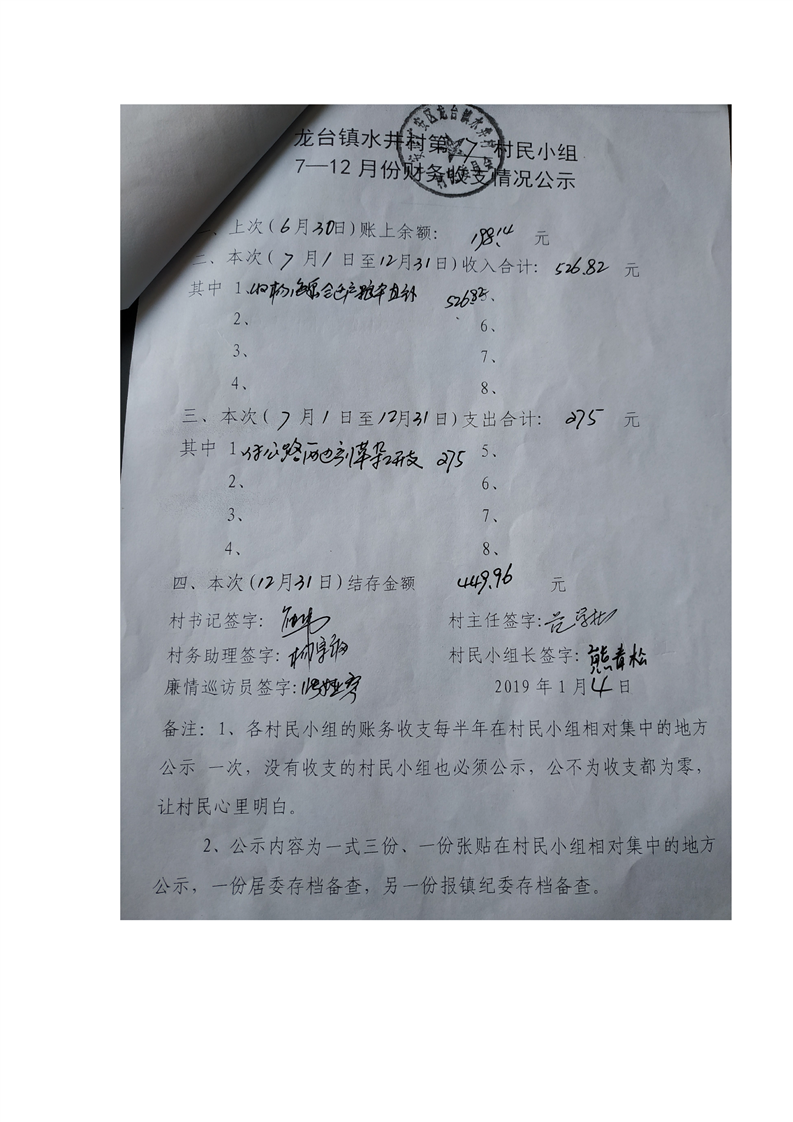 龙台镇水井村第 7 村民小组
7—12月份财务收支情况公示
一、上次(6月30日)账上余额: 198.14 元
二、本次(7月1日至12月31日)收入合计: 526.82 元
其中 1、 526.82 5、
2、 6、
3、 7、
4、 8、
三、本次(7月1日至12月31日)支出合计: 275 元
其中 1、付公路两边割草杂工开支 275 5、
2、 6、
3、 7、
4、 8、
四、本次(12月31日)结存金额 449.96 元
村书记签字: 村主任签字:
村务助理签字: 村民小组长签字:熊青松
廉情巡访员签字: 2019年1月4日
备注:1、各村民小组的账务收支每半年在村民小组相对集中的地方
公示 一次,没有收支的村民小组也必须公示,公不为收支都为零,
让村民心里明白。
2、公示内容为一式三份、一份张贴在村民小组相对集中的地方
公示,一份居委存档备查,另一份报镇纪委存档备查。